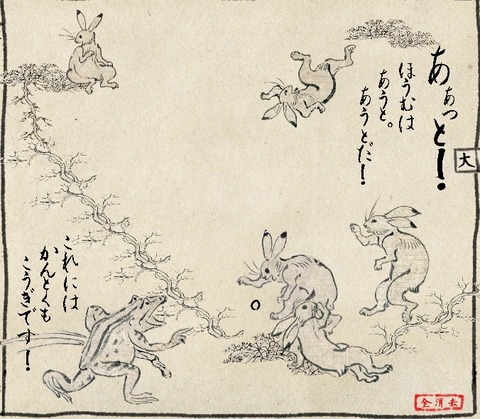 ああっと！
ほうむは
あうと。
あうとだ！
大
これには
かんとくも
こうぎです！
全消去